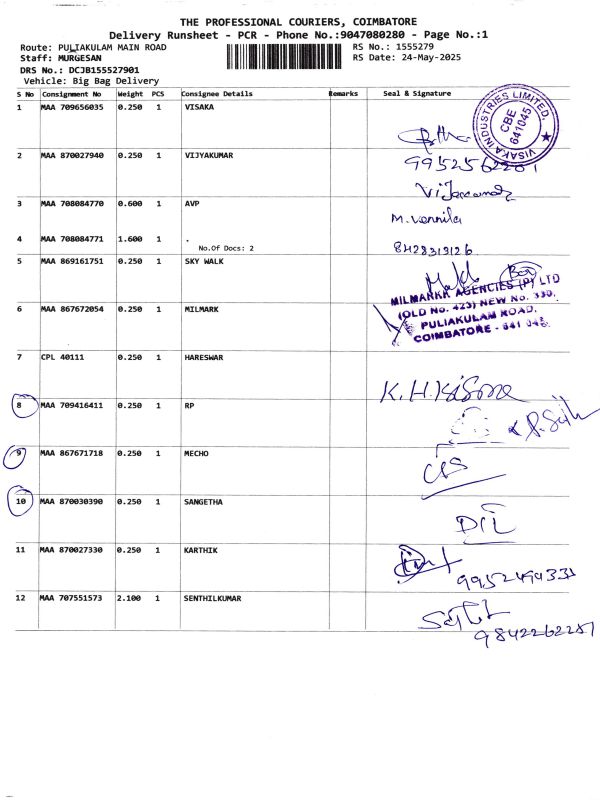 THE PROFESSIONAL COURIERS, COIMBATORE
Delivery Runsheet - PCR - Phone No.:9047080280 - Page No.:1
Route: PULIAKULAM MAIN ROAD RS No.: 1555279
Staff: MURGESAN RS Date: 24-May-2025
DRS No.: DCJB155527901
Vehicle: Big Bag Delivery
S No Consignment No Weight PCS Consignee Details Remarks Seal & Signature
1 MAA 709656035 0.250 1 VISAKA
VISAKA INDUSTRIES LIMITED.
CBE
641045
2 MAA 870027940 0.250 1 VIJYAKUMAR
3 MAA 708084770 0.600 1 AVP
M. Vennila
4 MAA 708084771 1.600 1 .
No.Of Docs: 2
8428313126
5 MAA 869161751 0.250 1 SKY WALK
6 MAA 867672054 0.250 1 MILMARK
MILMARKK AGENCIES (P) LTD
(OLD No. 423) NEW No. 330,
PULIAKULAM ROAD,
COIMBATORE - 641 045.
7 CPL 40111 0.250 1 HARESWAR
8 MAA 709416411 0.250 1 RP
9 MAA 867671718 0.250 1 MECHO
10 MAA 870030390 0.250 1 SANGETHA
11 MAA 870027330 0.250 1 KARTHIK
9952494331
12 MAA 707551573 2.100 1 SENTHILKUMAR
9842262287